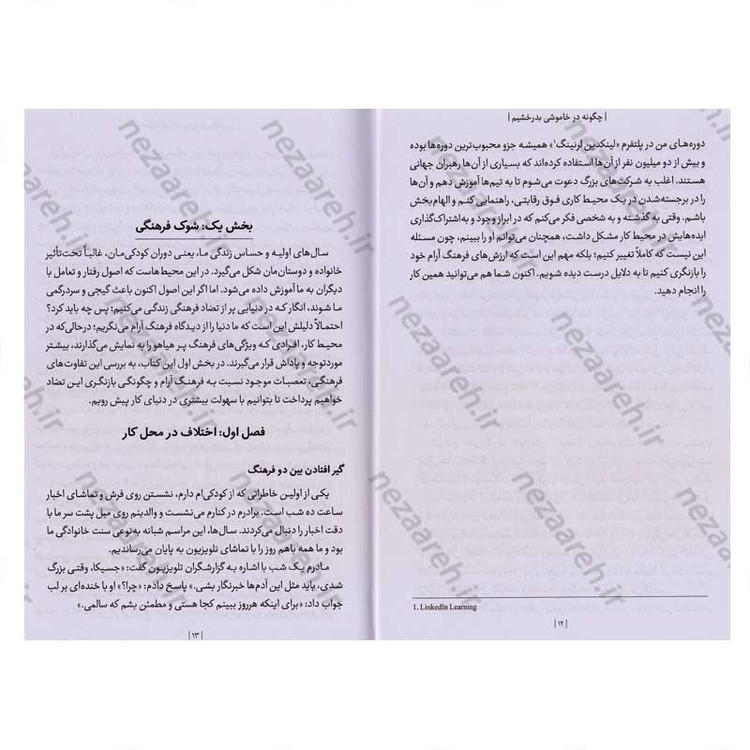 | چگونه در خاموشی بدرخشیم |
دوره‌های من در پلتفرم «لینکدین لرنینگ¹» همیشه جزو محبوب‌ترین دوره‌ها بوده
و بیش از دو میلیون نفر از آن‌ها استفاده کرده‌اند که بسیاری از آن‌ها رهبران جهانی
هستند. اغلب به شرکت‌های بزرگ دعوت می‌شوم تا به تیم‌ها آموزش دهم و آن‌ها
را در برجسته‌شدن در یک محیط کاری فوق رقابتی، راهنمایی کنم و الهام‌بخش
باشم. وقتی به گذشته و به شخصی فکر می‌کنم که در ابراز وجود و به‌اشتراک‌گذاری
ایده‌هایش در محیط کار مشکل داشت، همچنان می‌توانم او را ببینم، چون مسئله
این نیست که کاملاً تغییر کنیم؛ بلکه مهم این است که ارزش‌های فرهنگ آرام خود
را بازنگری کنیم تا به دلایل درست دیده شویم. اکنون شما هم می‌توانید همین کار
را انجام دهید.
1. LinkedIn Learning
| ۱۲ |
بخش یک: شوک فرهنگی
سال‌های اولیه و حساس زندگی ما، یعنی دوران کودکی‌مان، غالباً تحت‌تأثیر
خانواده و دوستان‌مان شکل می‌گیرد. در این محیط‌هاست که اصول رفتار و تعامل با
دیگران به ما آموزش داده می‌شود. اما اگر این اصول اکنون باعث گیجی و سردرگمی
ما شوند، انگار که در دنیایی پر از تضاد فرهنگی زندگی می‌کنیم؛ پس چه باید کرد؟
احتمالاً دلیلش این است که ما دنیا را از دیدگاه فرهنگ آرام می‌نگریم؛ درحالی‌که در
محیط کار، افرادی که ویژگی‌های فرهنگ پر هیاهو را به نمایش می‌گذارند، بیشتر
موردتوجه و پاداش قرار می‌گیرند. در بخش اول این کتاب، به بررسی این تفاوت‌های
فرهنگی، تعصبات موجود نسبت به فرهنگ آرام و چگونگی بازنگری این تضاد
خواهیم پرداخت تا بتوانیم با سهولت بیشتری در دنیای کار پیش رویم.
فصل اول: اختلاف در محل کار
گیر افتادن بین دو فرهنگ
یکی از اولین خاطراتی که از کودکی‌ام دارم، نشستن روی فرش و تماشای اخبار
ساعت ده شب است. برادرم در کنارم می‌نشست و والدینم روی مبل پشت سر ما با
دقت اخبار را دنبال می‌کردند. سال‌ها، این مراسم شبانه به‌نوعی سنت خانوادگی ما
بود و ما همه باهم روز را با تماشای تلویزیون به پایان می‌رساندیم.
مادرم یک شب با اشاره به گزارشگران تلویزیون گفت: «جسیکا، وقتی بزرگ
شدی، باید مثل این آدم‌ها خبرنگار بشی.» پاسخ دادم: «چرا؟» او با خنده‌ای بر لب
جواب داد: «برای اینکه هرروز ببینم کجا هستی و مطمئن بشم که سالمی.»
| ۱۳ |
nezaareh.ir
nezaareh.ir
nezaareh.ir
nezaareh.ir
nezaareh.ir
nezaareh.ir